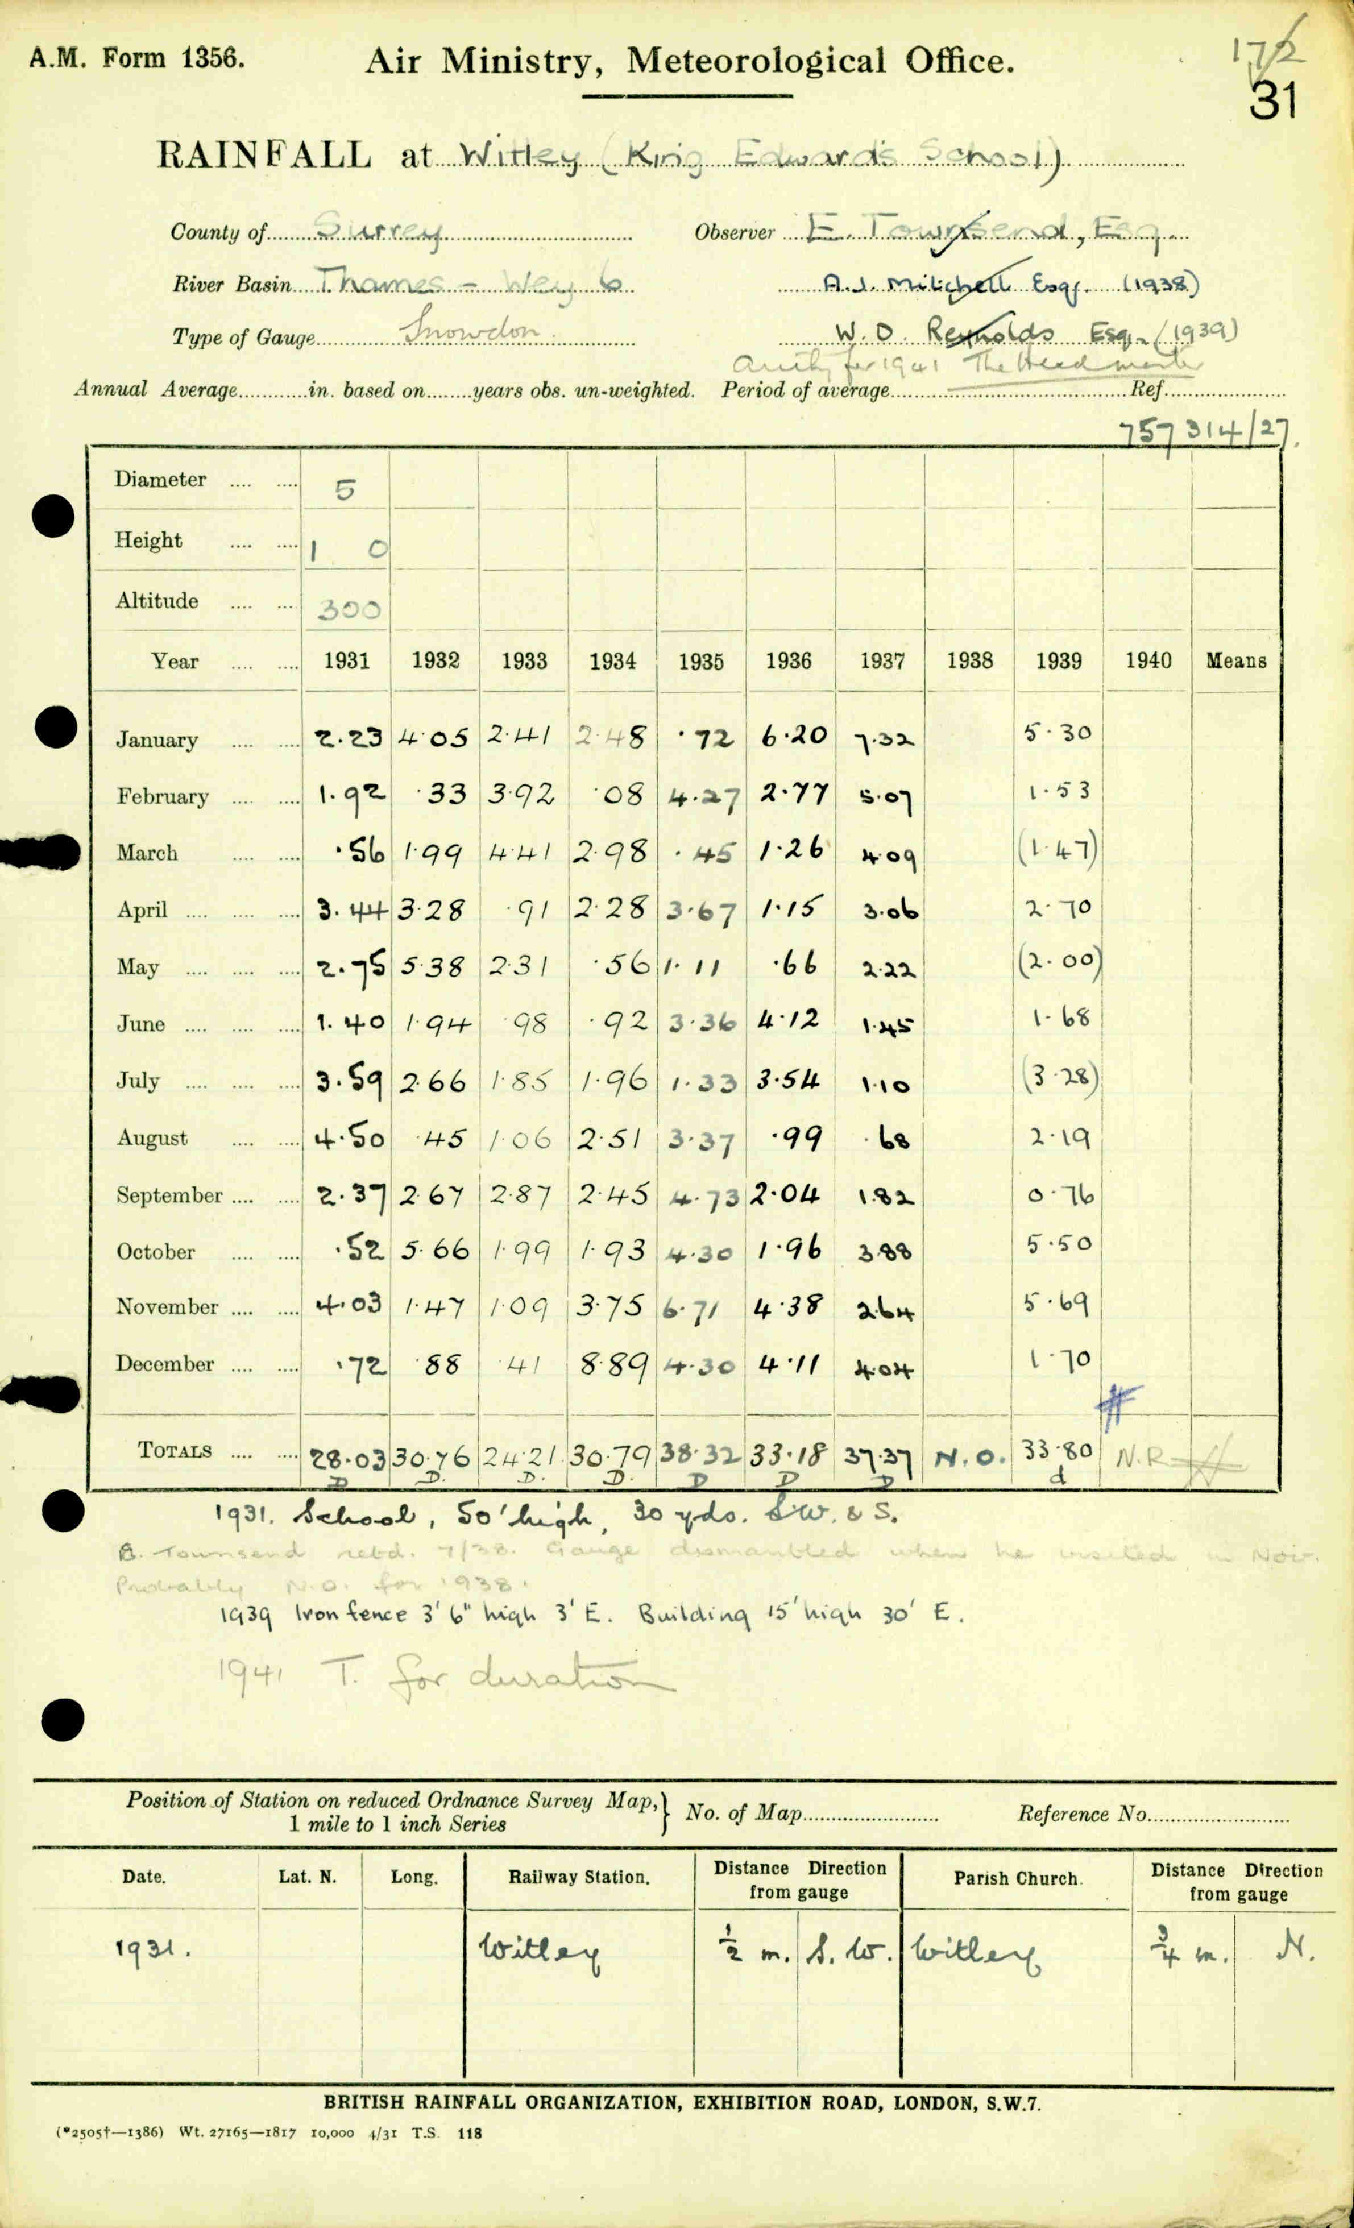 A.M. Form 1356.
Air Ministry, Meteorological Office.
172
31
RAINFALL at Witley (King Edward's School)
County of Surrey Observer E. Townsend, Esq.
River Basin Thames - Wey 6 A.J. Mitchell Esq. (1938)
Type of Gauge Snowdon W. O. Reynolds Esq. (1939)
for 1941 The Headmaster
Annual Average............in. based on........years obs. un-weighted. Period of average.............Ref.............
757 314/27.
Diameter .... .... 5
Height .... .... 1 0
Altitude .... .... 300
Year .... .... 1931 1932 1933 1934 1935 1936 1937 1938 1939 1940 Means
January .... .... 2.23 4.05 2.41 2.48 .72 6.20 7.32 5.30
February .... .... 1.92 .33 3.92 .08 4.27 2.77 5.07 1.53
March .... .... .56 1.99 4.41 2.98 .45 1.26 4.09 (1.47)
April .... .... .... 3.44 3.28 .91 2.28 3.67 1.15 3.06 2.70
May .... .... .... 2.75 5.38 2.31 .56 1.11 .66 2.22 (2.00)
June .... .... .... 1.40 1.94 .98 .92 3.36 4.12 1.45 1.68
July .... .... .... 3.59 2.66 1.85 1.96 1.33 3.54 1.10 (3.28)
August .... .... 4.50 .45 1.06 2.51 3.37 .99 .68 2.19
September .... .... 2.37 2.67 2.87 2.45 4.73 2.04 1.82 0.76
October .... .... .52 5.66 1.99 1.93 4.30 1.96 3.88 5.50
November .... .... 4.03 1.47 1.09 3.75 6.71 4.38 2.64 5.69
December .... .... .72 .88 .41 8.89 4.30 4.11 4.04 1.70
TOTALS .... .... 28.03 30.76 24.21 30.79 38.32 33.18 37.37 N.O. 33.80 N.R.
D D. D. D. D D D d
1931. School, 50' high, 30 yds. S.W. & S.
Townsend retd. 7/38. Gauge dismantled when he visited in Nov.
Probably N.O. for 1938.
1939 Iron fence 3' 6" high 3' E. Building 15' high 30' E.
1941 T. for duration
Position of Station on reduced Ordnance Survey Map, } No. of Map............ Reference No............
1 mile to 1 inch Series
Date. Lat. N. Long. Railway Station. Distance Direction from gauge Parish Church. Distance Direction from gauge
1931. Witley ½ m. S.W. Witley ¾ m. N.
BRITISH RAINFALL ORGANIZATION, EXHIBITION ROAD, LONDON, S.W.7.
(*2505†—1386) Wt. 27165—1817 10,000 4/31 T.S. 118